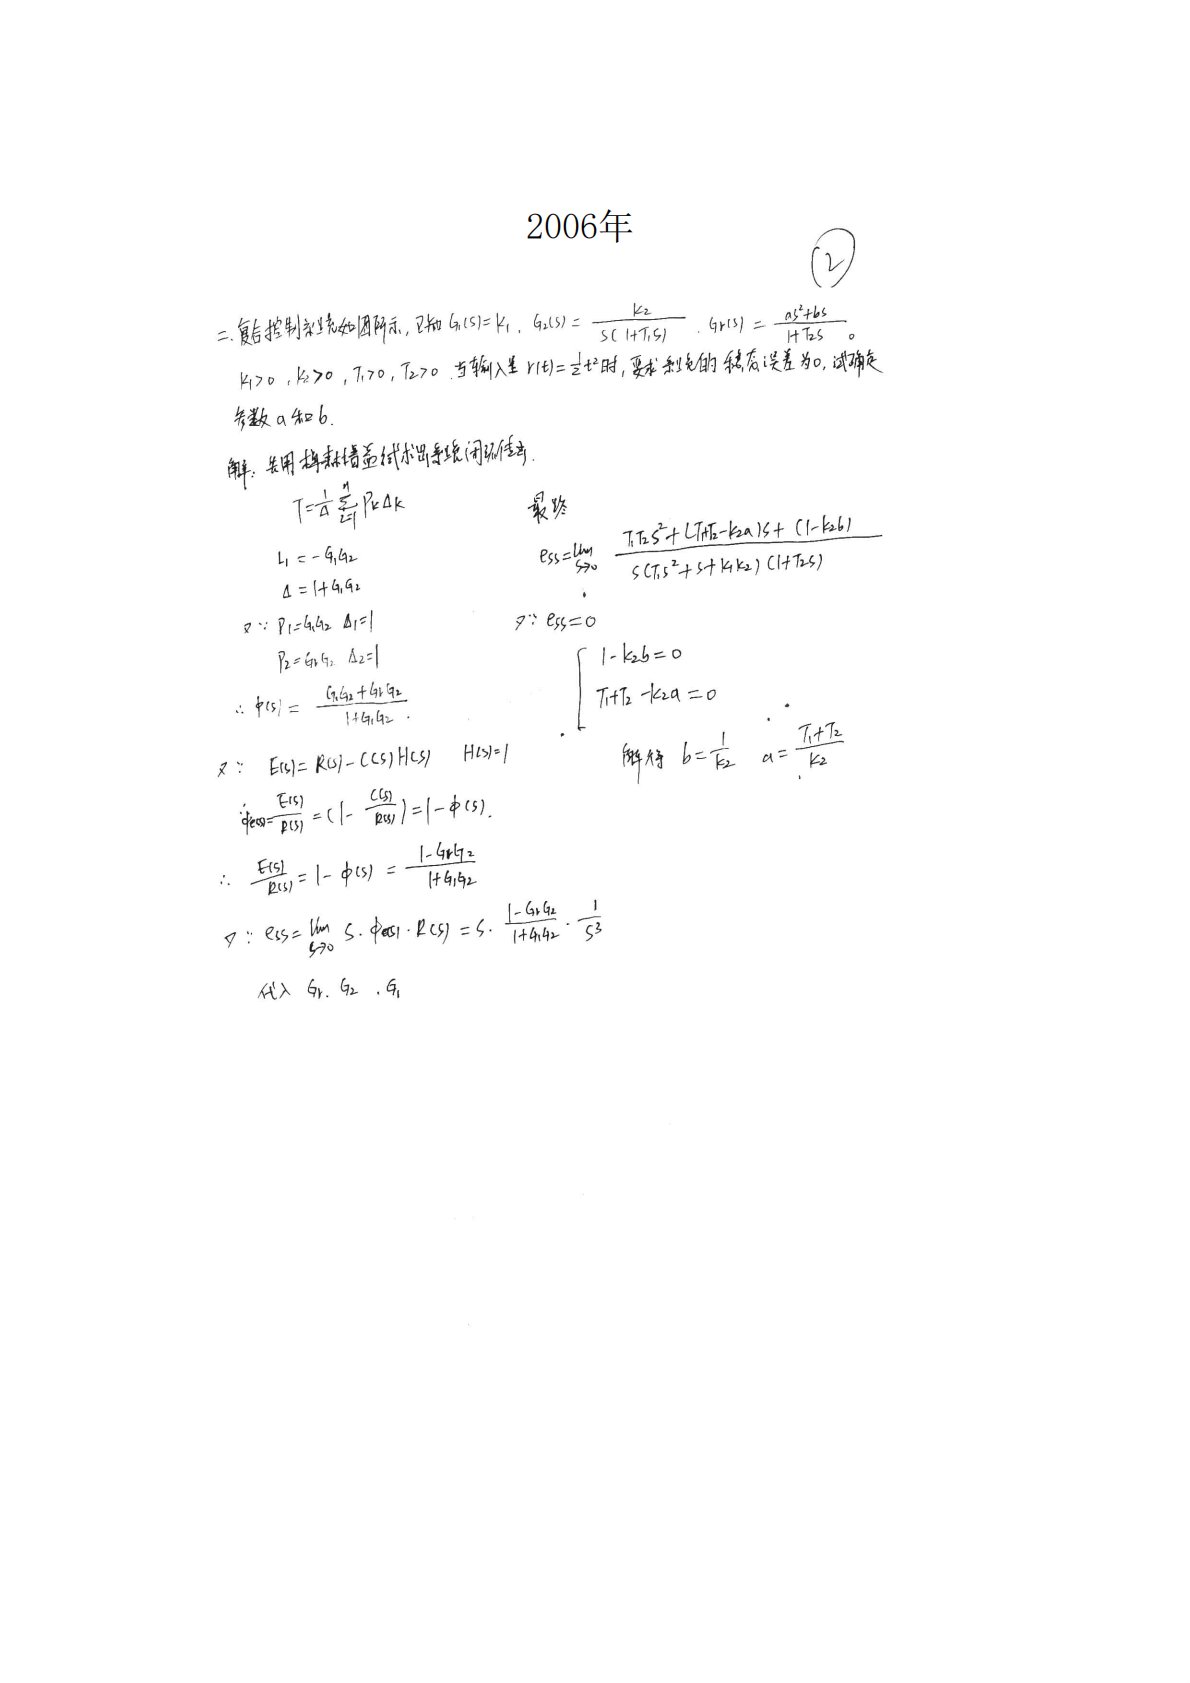 2006年
2
二.复合控制系统如图所示,已知 G₁(s)=K₁, G₂(s)=K₂/(s(1+T₁s)), Gr(s)=(as²+bs)/(1+T₂s)。
K₁>0, K₂>0, T₁>0, T₂>0 当输入量 r(t)=½t²时,要求系统的稳态误差为0,试确定
参数 a 和 b.
解: 先用梅森增益公式求出系统闭环传函.
T=1/Δ Σ PkΔk
L₁=-G₁G₂
Δ=1+G₁G₂
又∵ P₁=G₁G₂ Δ₁=1
P₂=GrG₂ Δ₂=1
∴ φ(s)=(G₁G₂+GrG₂)/(1+G₁G₂)
又∵ E(s)=R(s)-C(s)H(s) H(s)=1
∴ φe(s)=E(s)/R(s)=(1-C(s)/R(s))=1-φ(s).
∴ E(s)/R(s)=1-φ(s)=(1-GrG₂)/(1+G₁G₂)
又∵ ess=lim s→0 s·φe(s)·R(s)=s·(1-GrG₂)/(1+G₁G₂)·1/s³
代入 Gr. G₂ .G₁
最终
ess=lim s→0 (T₁T₂s²+(T₁+T₂-K₂a)s+(1-K₂b))/(s(T₁s²+s+K₁K₂)(1+T₂s))
又∵ ess=0
{ 1-K₂b=0
T₁+T₂-K₂a=0
解得 b=1/K₂ a=(T₁+T₂)/K₂